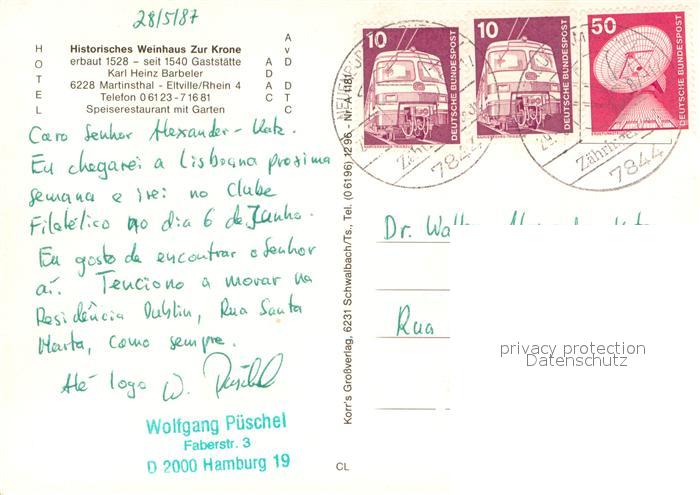 28/5/87
HOTEL
Historisches Weinhaus Zur Krone
erbaut 1528 – seit 1540 Gaststätte
Karl Heinz Barbeler
6228 Martinsthal - Eltville/Rhein 4
Telefon 0 61 23 - 7 16 81
Speiserestaurant mit Garten
AvD
ADAC
DDAC
ACT
Caro Senhor Alexander-Katz.
Eu chegarei a Lisboana proxima
semana e irei no Clube
Filatélico no dia 6 de Junho.
Eu gosto de encontrar o Senhor
aí. Tenciono a morar na
Residência Dublin, Rua Santa
Marta, como sempre.
Até logo W. Püschel
Wolfgang Püschel
Faberstr. 3
D 2000 Hamburg 19
CL
Korr's Großverlag, 6231 Schwalbach/Ts., Tel. (0 61 96) 12 96 - Nr. A
10
DEUTSCHE BUNDESPOST
10
DEUTSCHE BUNDESPOST
50
DEUTSCHE BUNDESPOST
7844
7844
Dr.
Rua
privacy protection
Datenschutz